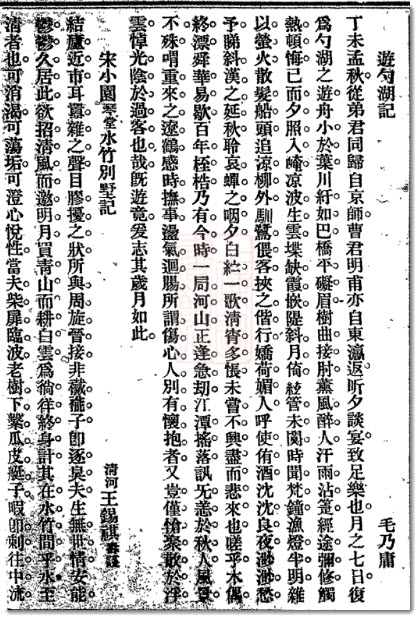 遊勺湖記　毛乃庸
丁未孟秋從弟君同歸自京師曹君明甫亦自東瀛返昕夕談宴致足樂也月之七日復
爲勺湖之遊舟小於葉川紆如巴橋平礙眉樹曲接肘薰風醉人汗雨沾箑經途彌修觸
熱頓悔已而夕照入峰涼波生雲堞缺霞嵌隄斜月倚絃管未闋時聞梵鐘漁燈半明雜
以螢火散髮船頭追涼柳外馴鷺偎客挾之偕行嬌荷媚人呼使侑酒沈沈良夜渺渺愁
予睇斜漢之延秋聆哀蟬之咽夕白紵一歌清宵多悵未嘗不興盡而悲來也嗟乎木偶
終漂舜華易歇百年桎梏乃有今時一局河山正逢急劫江潭搖落訊旡恙於秋人風景
不殊喟重來之遼鶴感時撫事盪氣迴腸所謂傷心人別有懷抱者又豈僅愴聚散於浮
雲悼光陰於過客也哉旣遊竟爰志其歲月如此
宋小園琴堂水竹別墅記　清河王錫祺
結廬近市耳囂雜之聲目膠擾之狀所與周旋晉接非襤褸子卽逐臭夫生無世情安能
鬱鬱久居此欲招清風而邀明月買青山而耕白雲爲徜徉終身計其在水竹間乎水至
清者也可消渴可蕩垢可澄心悅性當夫柴扉臨波老樹下繫瓜皮艇子暇卽刺往中流